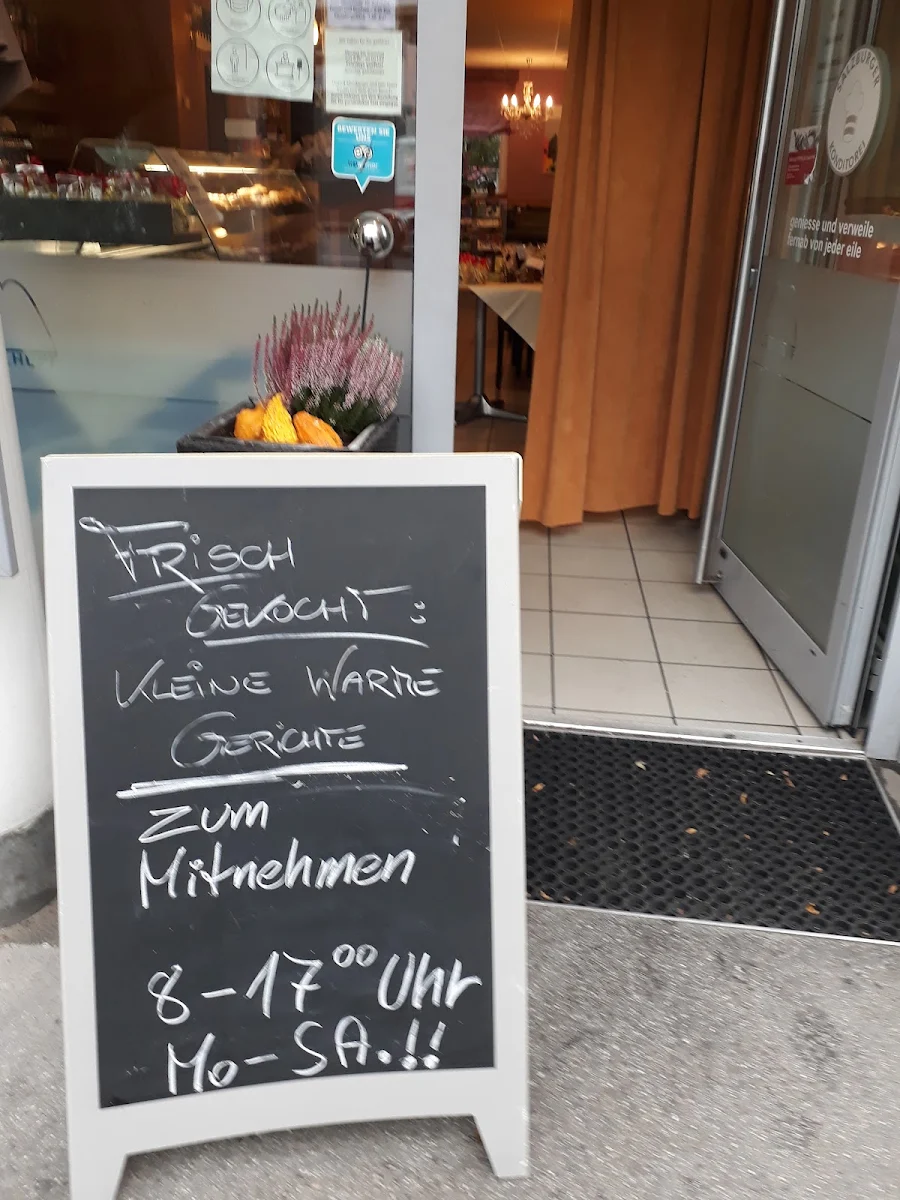 BEWERTEN SIE
UNS
SALZBURGER
KONDITOREI
geniesse und verweile
fernab von jeder eile
FRISCH
GEKOCHT:
KLEINE WARME
GERICHTE
ZUM
Mitnehmen
8-17⁰⁰ Uhr
Mo-SA.!!